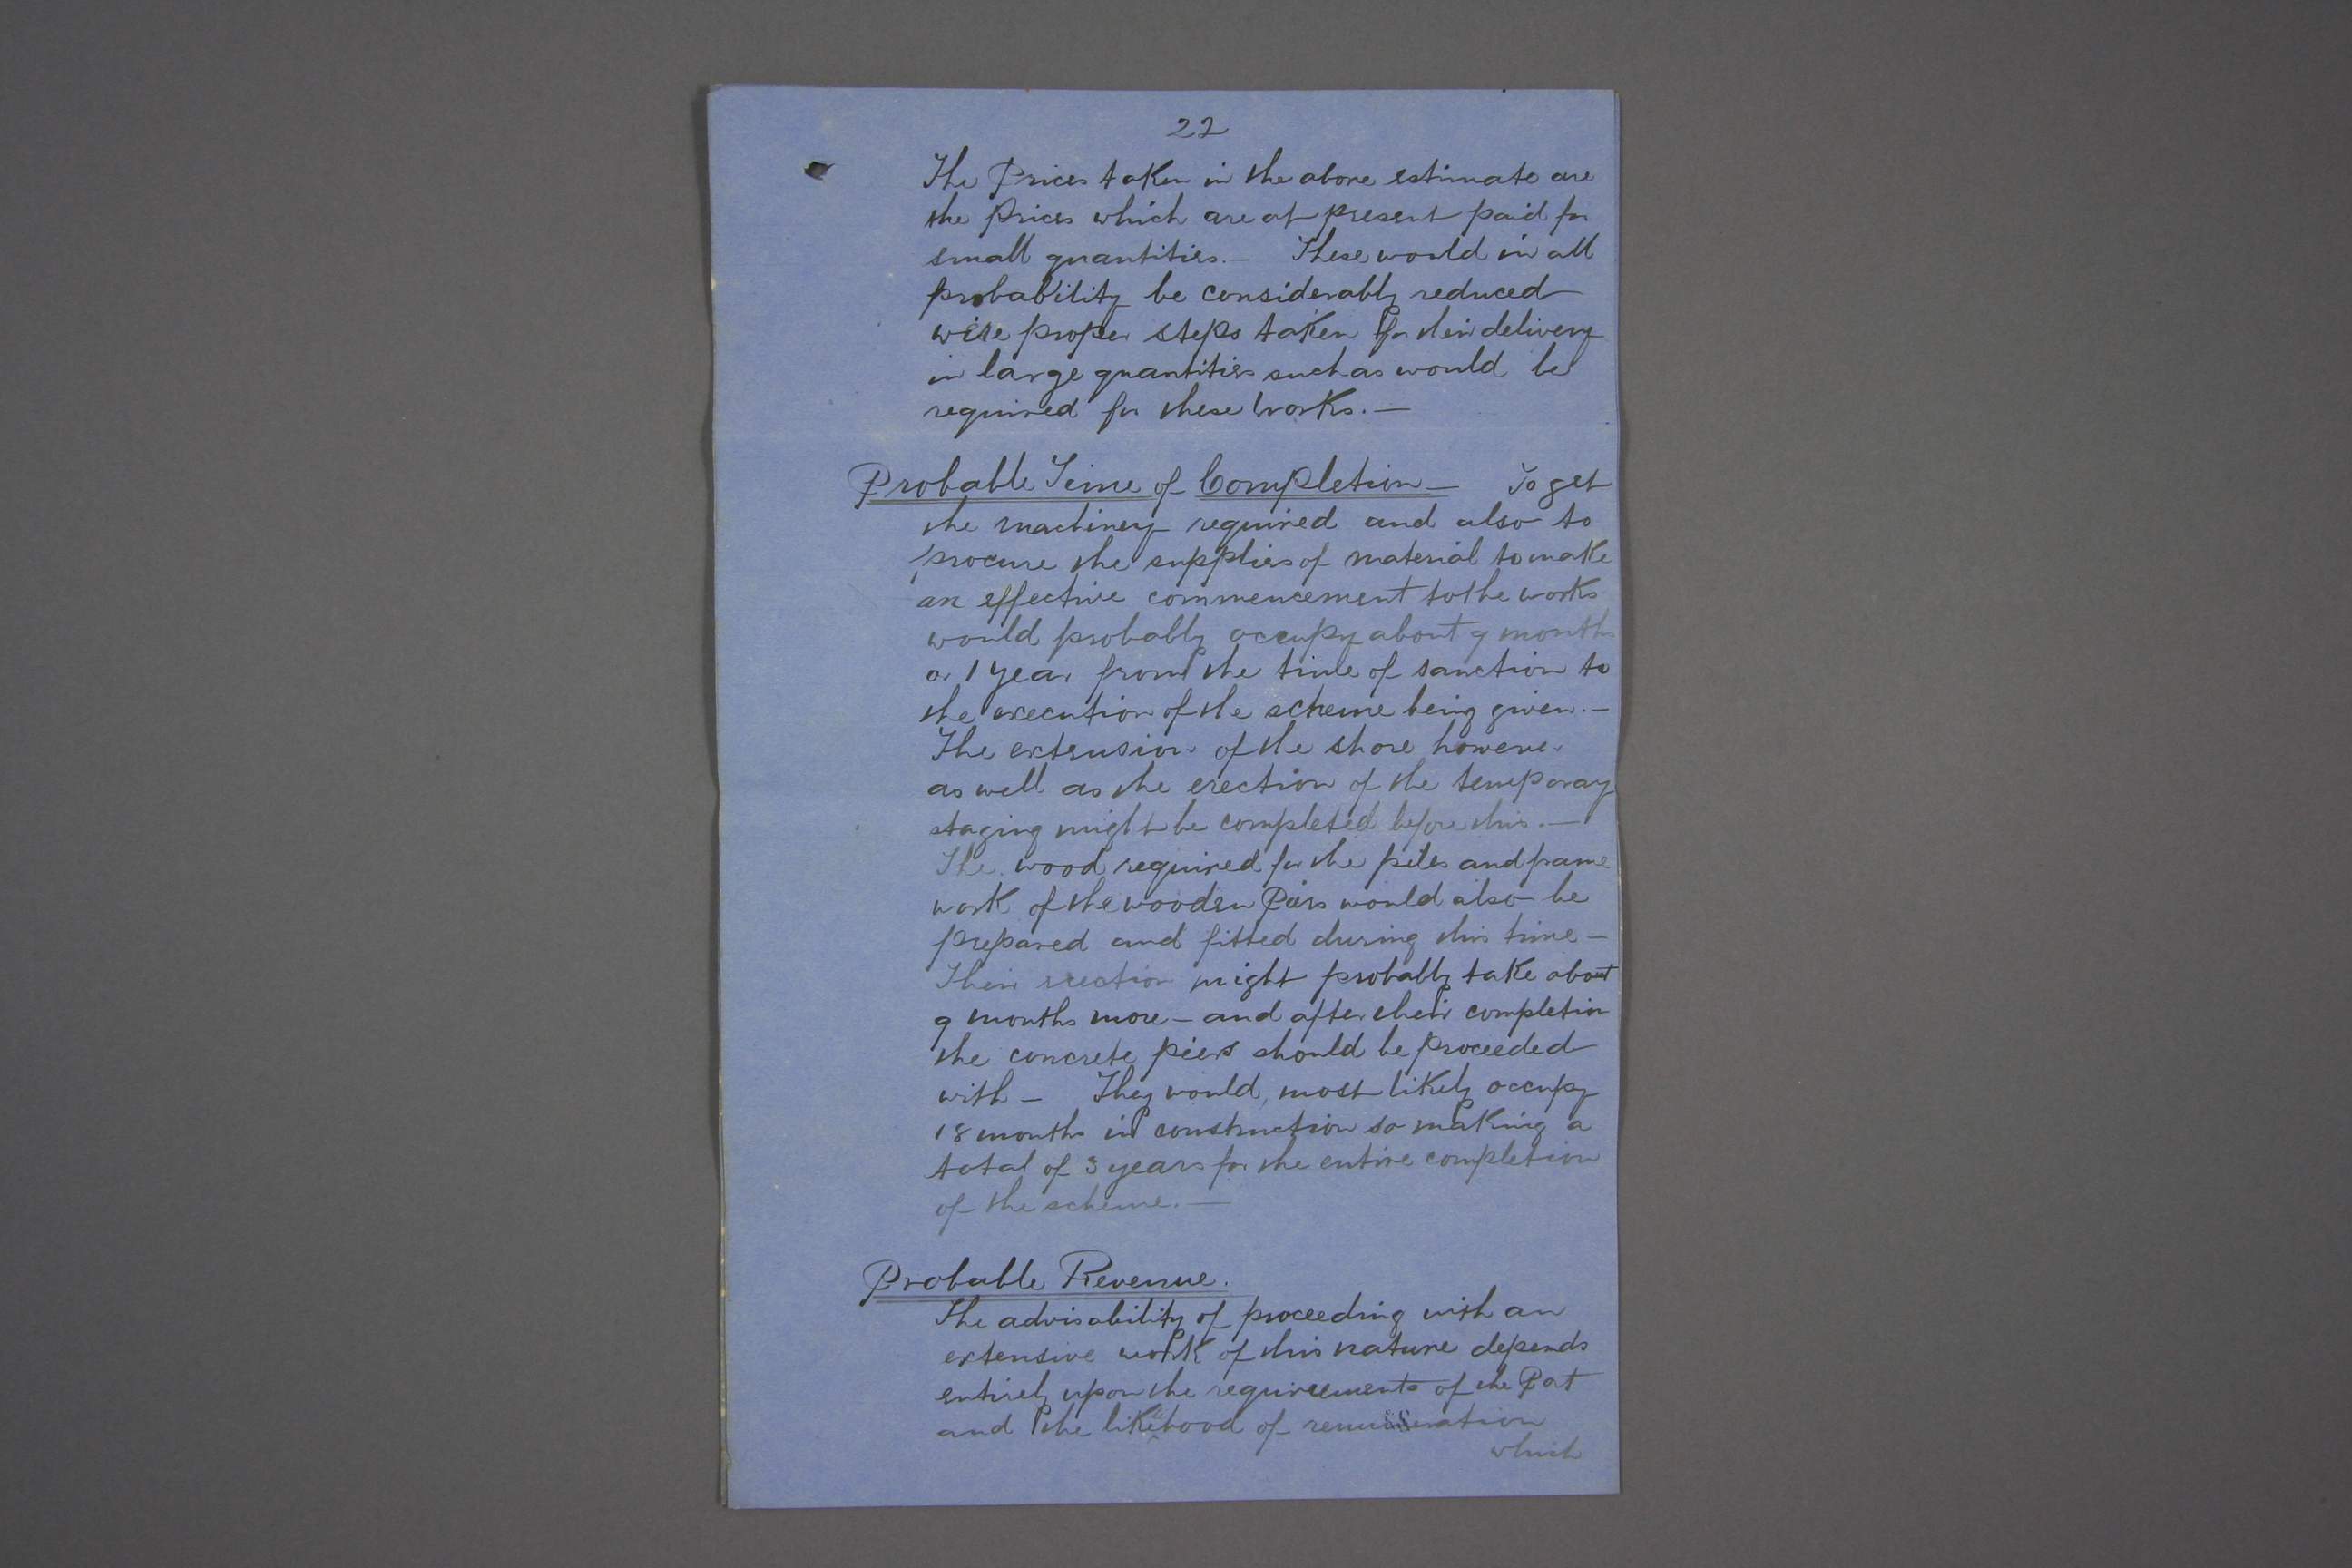 22
The Prices taken in the above estimate are
the Prices which are at present paid for
small quantities. — These would in all
probability be considerably reduced
were proper steps taken for their delivery
in large quantities such as would be
required for these Works. —
Probable Time of Completion — To get
the machinery required and also to
procure the supplies of material to make
an effective commencement to the works
would probably occupy about 9 months
or 1 year from the time of sanction to
the execution of the scheme being given. —
The extension of the shore however
as well as the erection of the temporary
staging might be completed before this. —
The wood required for the piles and frame
work of the wooden Piers would also be
prepared and fitted during this time —
Their erection might probably take about
9 months more — and after their completion
the concrete piers should be proceeded
with — They would, most likely occupy
18 months in construction so making a
total of 3 years for the entire completion
of the scheme. —
Probable Revenue.
The advisability of proceeding with an
extensive work of this nature depends
entirely upon the requirements of the Port
and the likelihood of remuneration
which